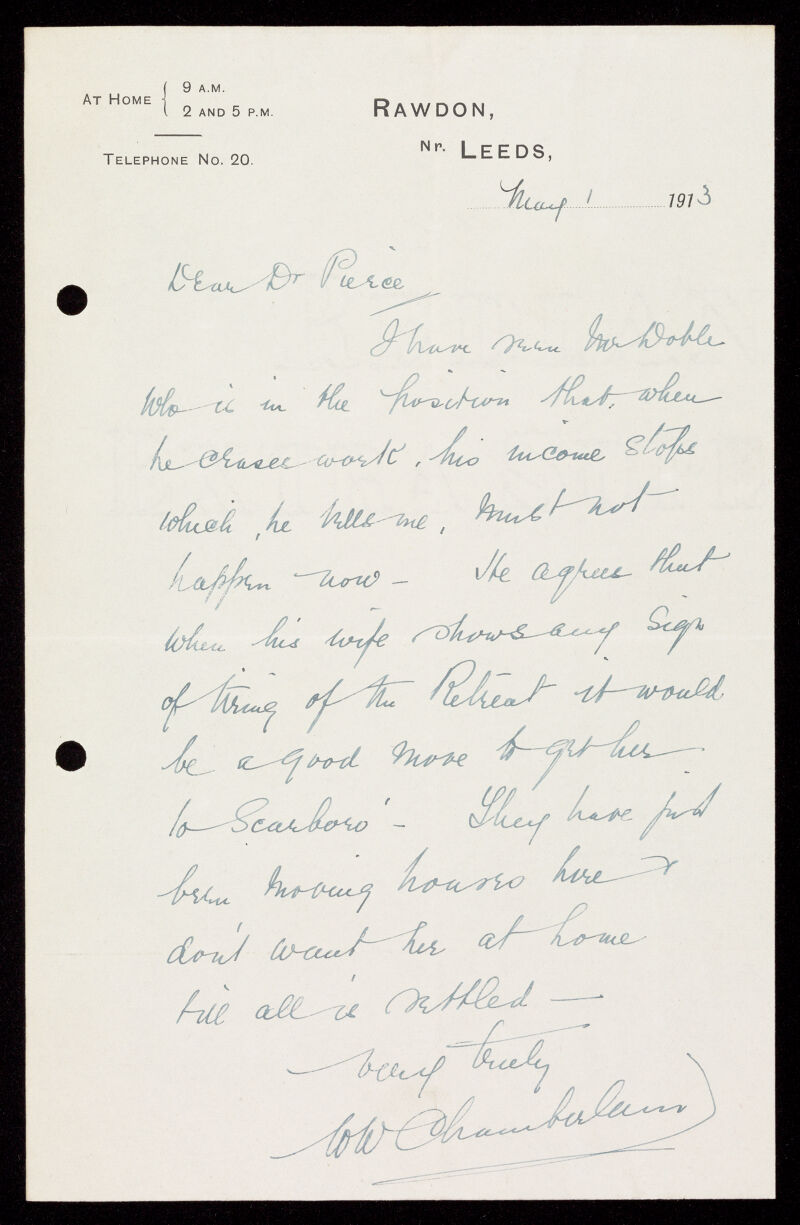 AT HOME { 9 A.M.
2 AND 5 P.M.
TELEPHONE NO. 20.
RAWDON,
Nr. LEEDS,
May 1 1913
Dear Dr Pierce
I have seen Mr Doble
who is in the position that, when
he ceases work, his income stops
which, he tells me, must not
happen now - He agrees that
when his wife shows any sign
of tiring of the Retreat it would
be a good move to get her
to Scarboro' - They have just
been moving houses here &
don't want her at home
till all is settled —
very truly
WW Chamberlain